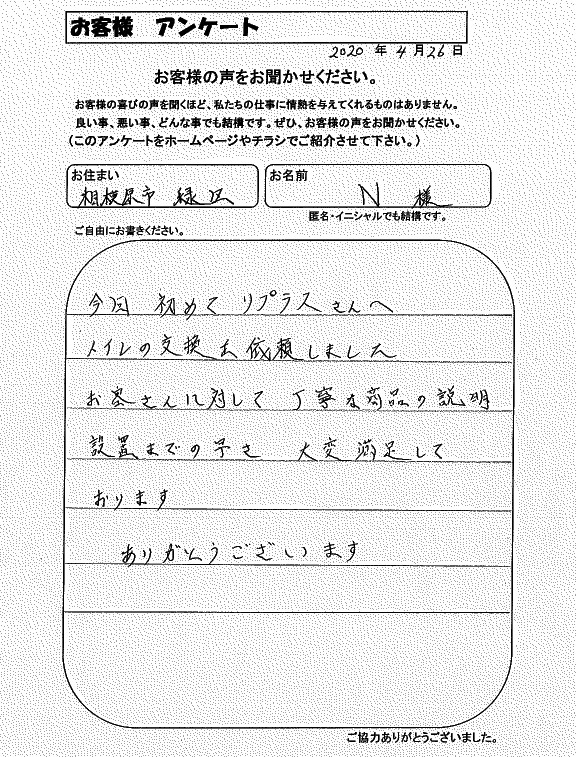 お客様 アンケート
2020 年 4 月 26 日
お客様の声をお聞かせください。
お客様の喜びの声を聞くほど、私たちの仕事に情熱を与えてくれるものはありません。
良い事、悪い事、どんな事でも結構です。ぜひ、お客様の声をお聞かせください。
（このアンケートをホームページやチラシでご紹介させて下さい。）
お住まい
相模原市 緑区
お名前
N 様
匿名・イニシャルでも結構です。
ご自由にお書きください。
今回 初めて リプラスさんへ
トイレの交換を依頼しました
お客さんに対して 丁寧な商品の説明
設置までの早さ 大変満足して
おります
ありがとうございます
ご協力ありがとうございました。